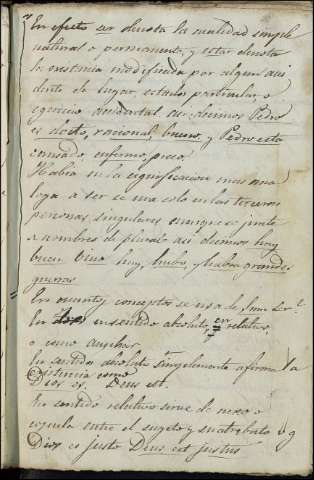 En efecto ser denota la realidad simple
natural o permanente, y estar denota
la existencia modificada por algun acci
dente de lugar, estado particular o
egercicio accidental así: decimos Pedro
es docto, racional, bueno, y Pedro está
cansado, enfermo,
Habia en la significacion mas ana
loga a ser se usa solo en las terceras
personas singulares aunque se junte
a nombres de plural asi decimos hay
buen vino hay, hubo, y habrá grandes
guerras
En cuantos conceptos se usa de
En sentido absoluto, en relativo,
o como
En sentido absoluto simplemente afirma la
existencia como
Dios es. Deus est.
En sentido relativo sirve de nexo o
copula entre el sugeto y su atributo v g
Dios es justo Deus est justus